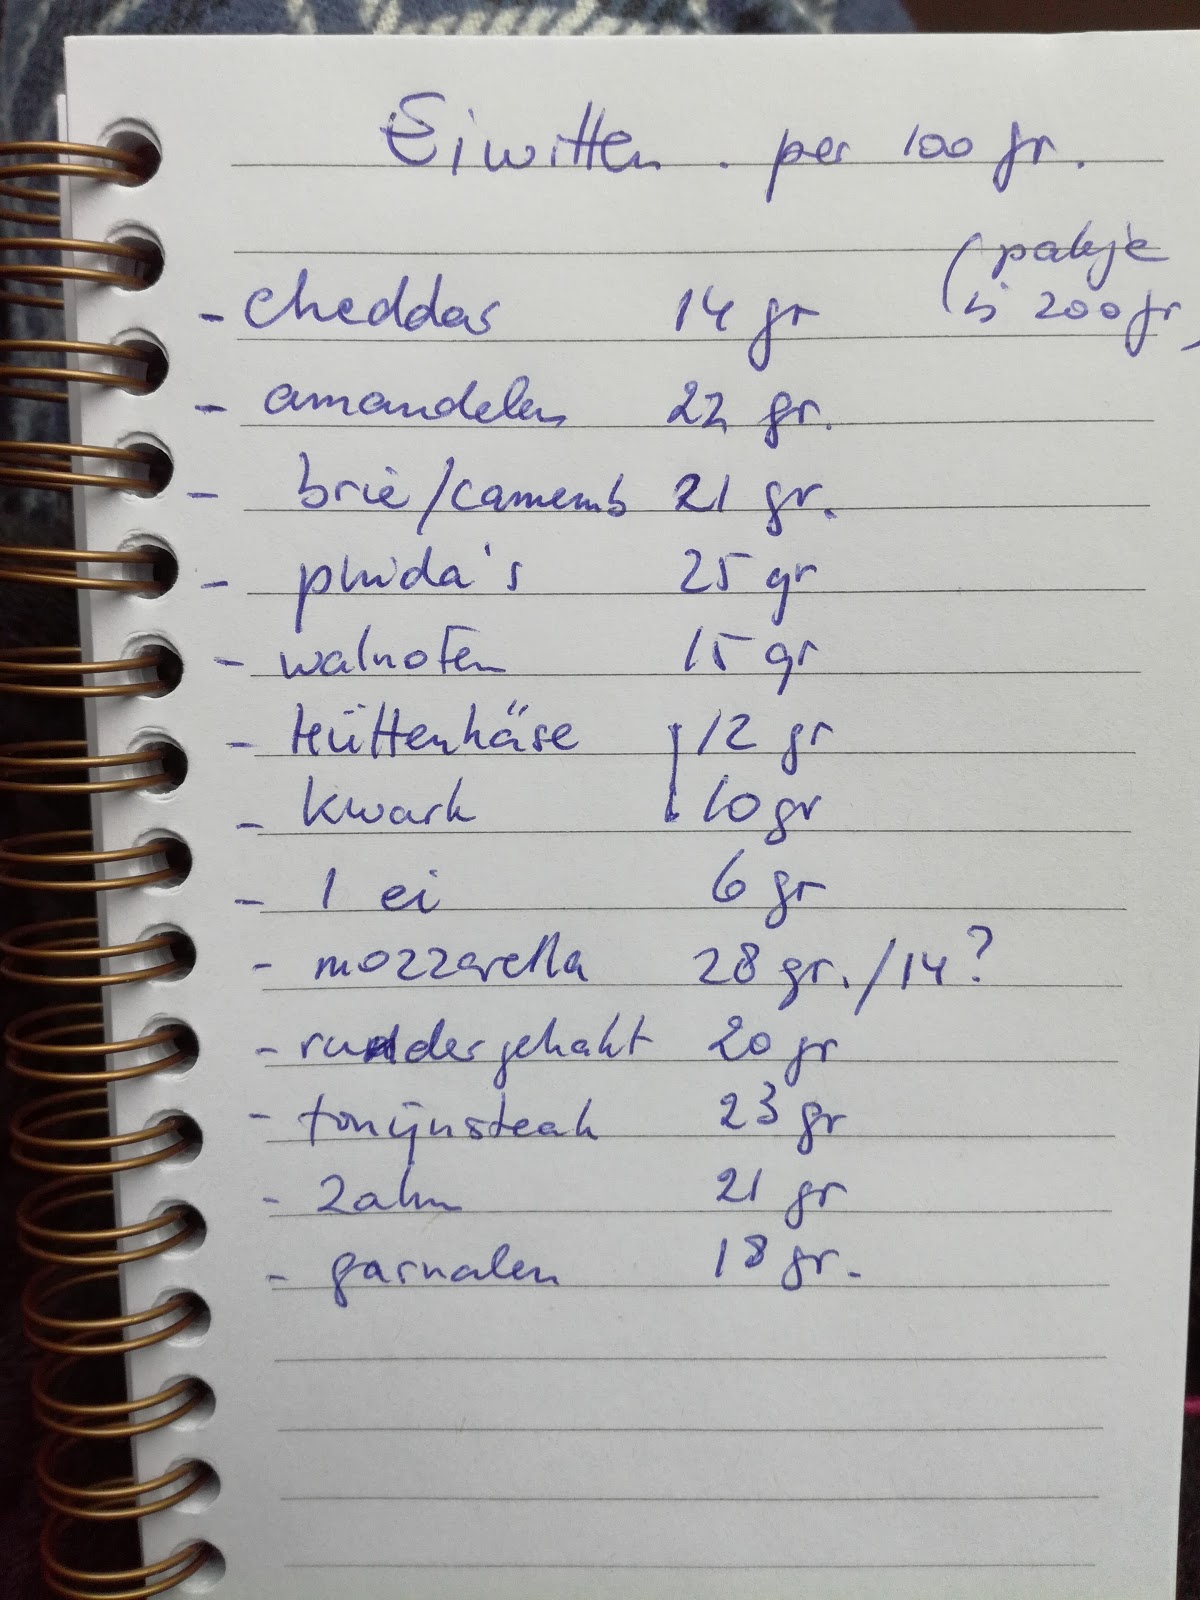 Eiwitten . per 100 gr.
(pakje
is 200 gr)
- cheddar 14 gr
- amandelen 22 gr.
- brie/camemb 21 gr.
- pinda's 25 gr
- walnoten 15 gr
- Hüttenkäse 12 gr
- kwark 10 gr
- 1 ei 6 gr
- mozzarella 28 gr./14?
- rundergehakt 20 gr
- tonijnsteak 23 gr
- zalm 21 gr
- garnalen 18 gr.